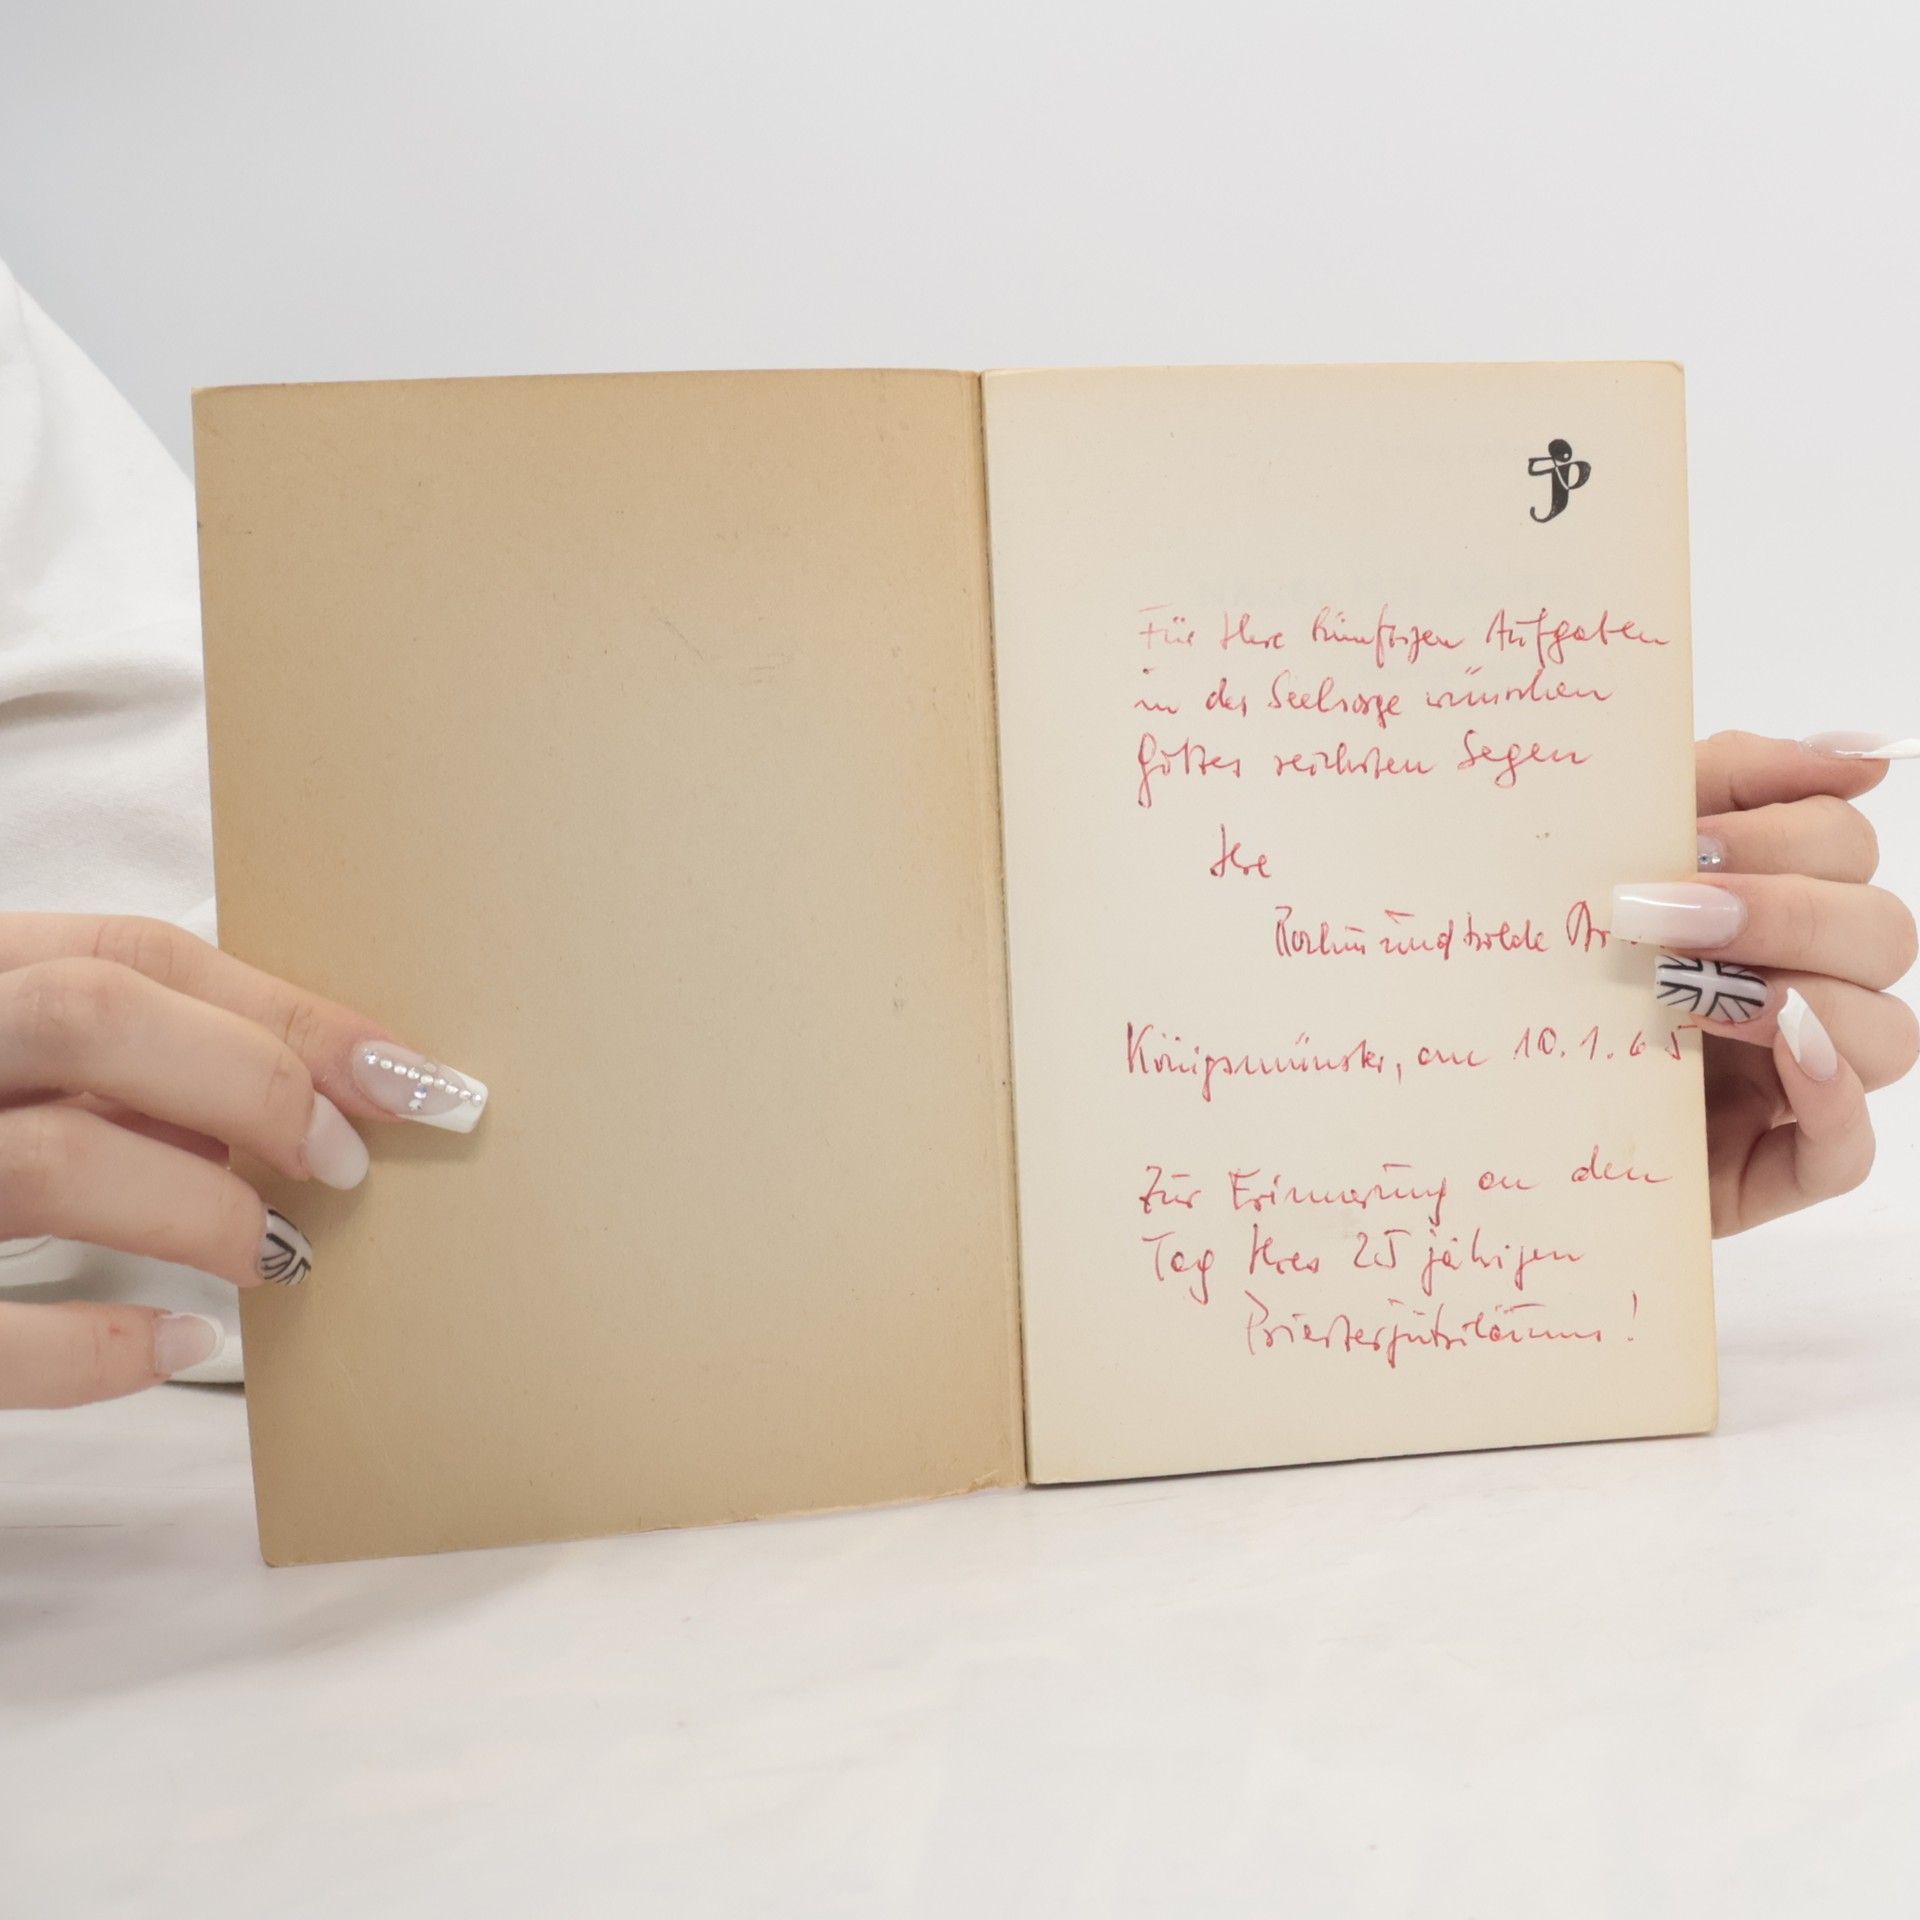 Für Ihre künftigen Aufgaben
in der Seelsorge wünschen
Gottes reichsten Segen
Ihre
und
Königsmünster, am 10.1.65
Zur Erinnerung an den
Tag Ihres 25 jährigen
Priesterjubiläums!